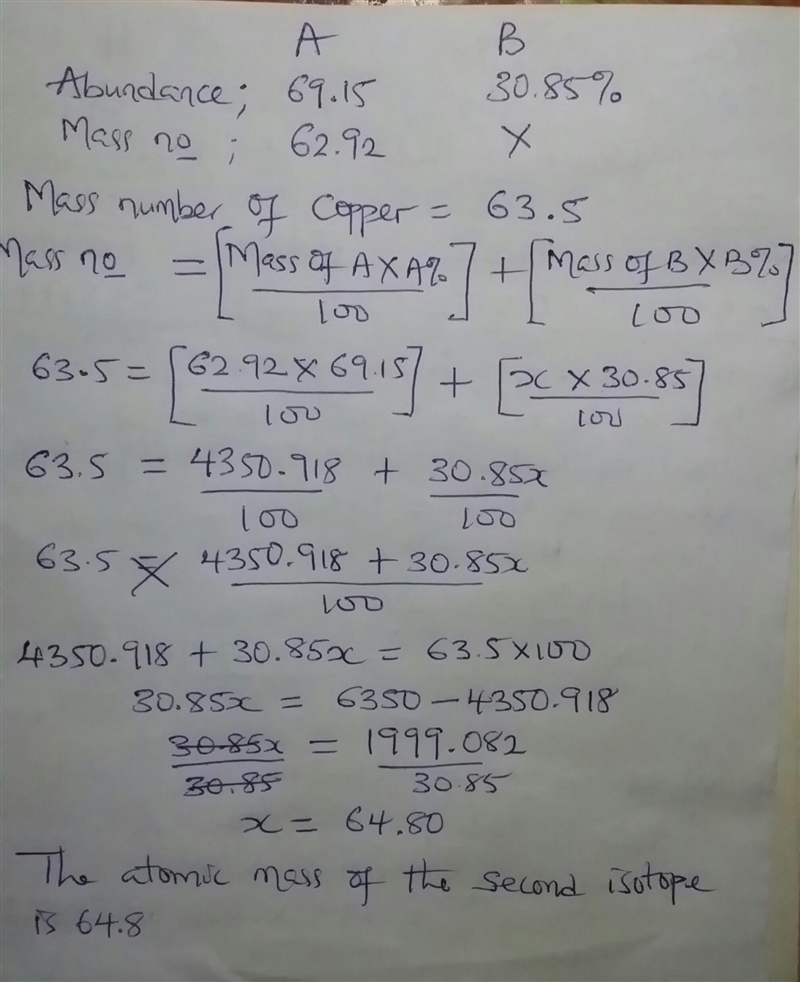 A B
Abundance; 69.15 30.85%
Mass no ; 62.92 X
Mass number of Copper = 63.5
Mass no = [Mass of A X A% / 100] + [Mass of B X B% / 100]
63.5 = [62.92 X 69.15 / 100] + [x X 30.85 / 100]
63.5 = 4350.918 / 100 + 30.85x / 100
63.5 = 4350.918 + 30.85x / 100
4350.918 + 30.85x = 63.5 X 100
30.85x = 6350 – 4350.918
30.85x / 30.85 = 1999.082 / 30.85
x = 64.80
The atomic mass of the second isotope
is 64.8